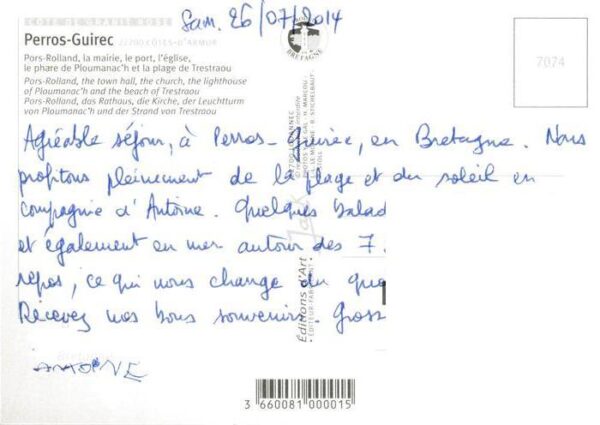 Sam. 26/07/2014
CÔTE DE GRANIT ROSE
Perros-Guirec 22700 CÔTES-D'ARMOR
Pors-Rolland, la mairie, le port, l'église,
le phare de Ploumanac'h et la plage de Trestraou
Pors-Rolland, the town hall, the church, the lighthouse
of Ploumanac'h and the beach of Trestraou
Pors-Rolland, das Rathaus, die Kirche, der Leuchtturm
von Ploumanac'h und der Strand von Trestraou
BRETAGNE
7074
Agréable séjour, à Perros-Guirec, en Bretagne. Nous
profitons pleinement de la plage et du soleil en
compagnie d'Antoine. Quelques balad
et également en mer autour des 7.
repos, ce qui nous change du quo
Recevez nos bons souvenirs. Gross
ANTOINE
Éditions d'Art
JACK
3 660081 000015